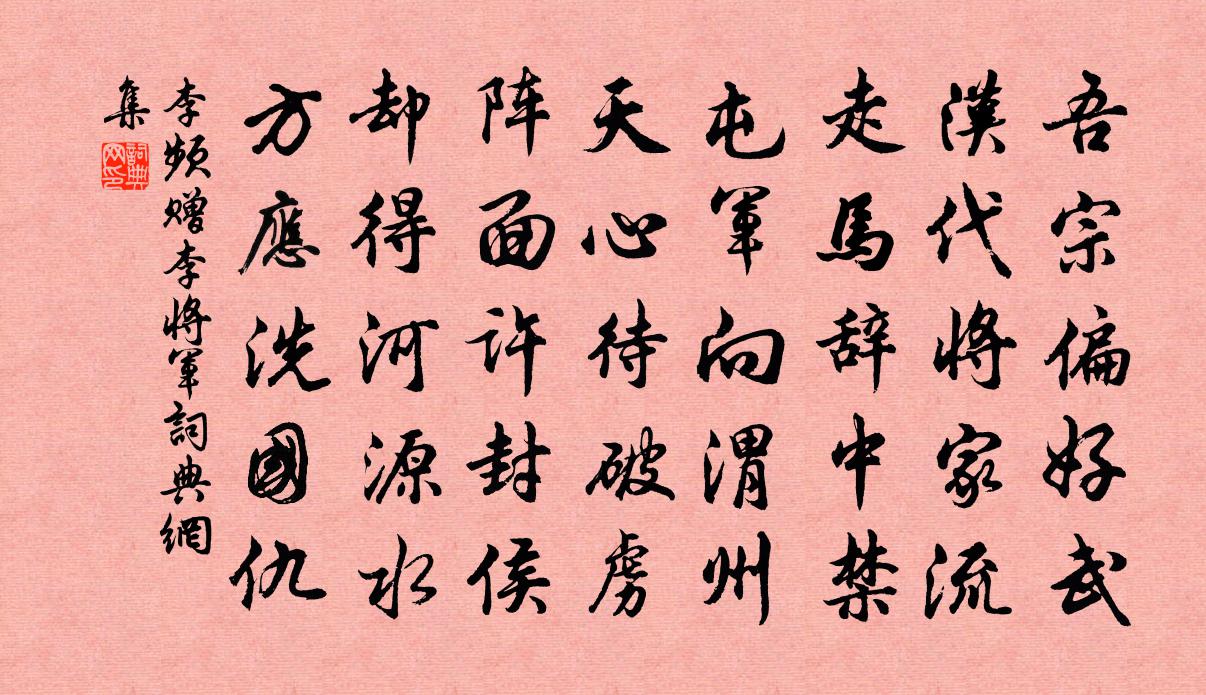 吾宗偏好武
漢代將家流
走馬辞中禁
屯軍向渭州
天心待破虜
阵面許封侯
却得河源水
方應洗國仇
李频赠李將軍詞典網
集
詞典
网印